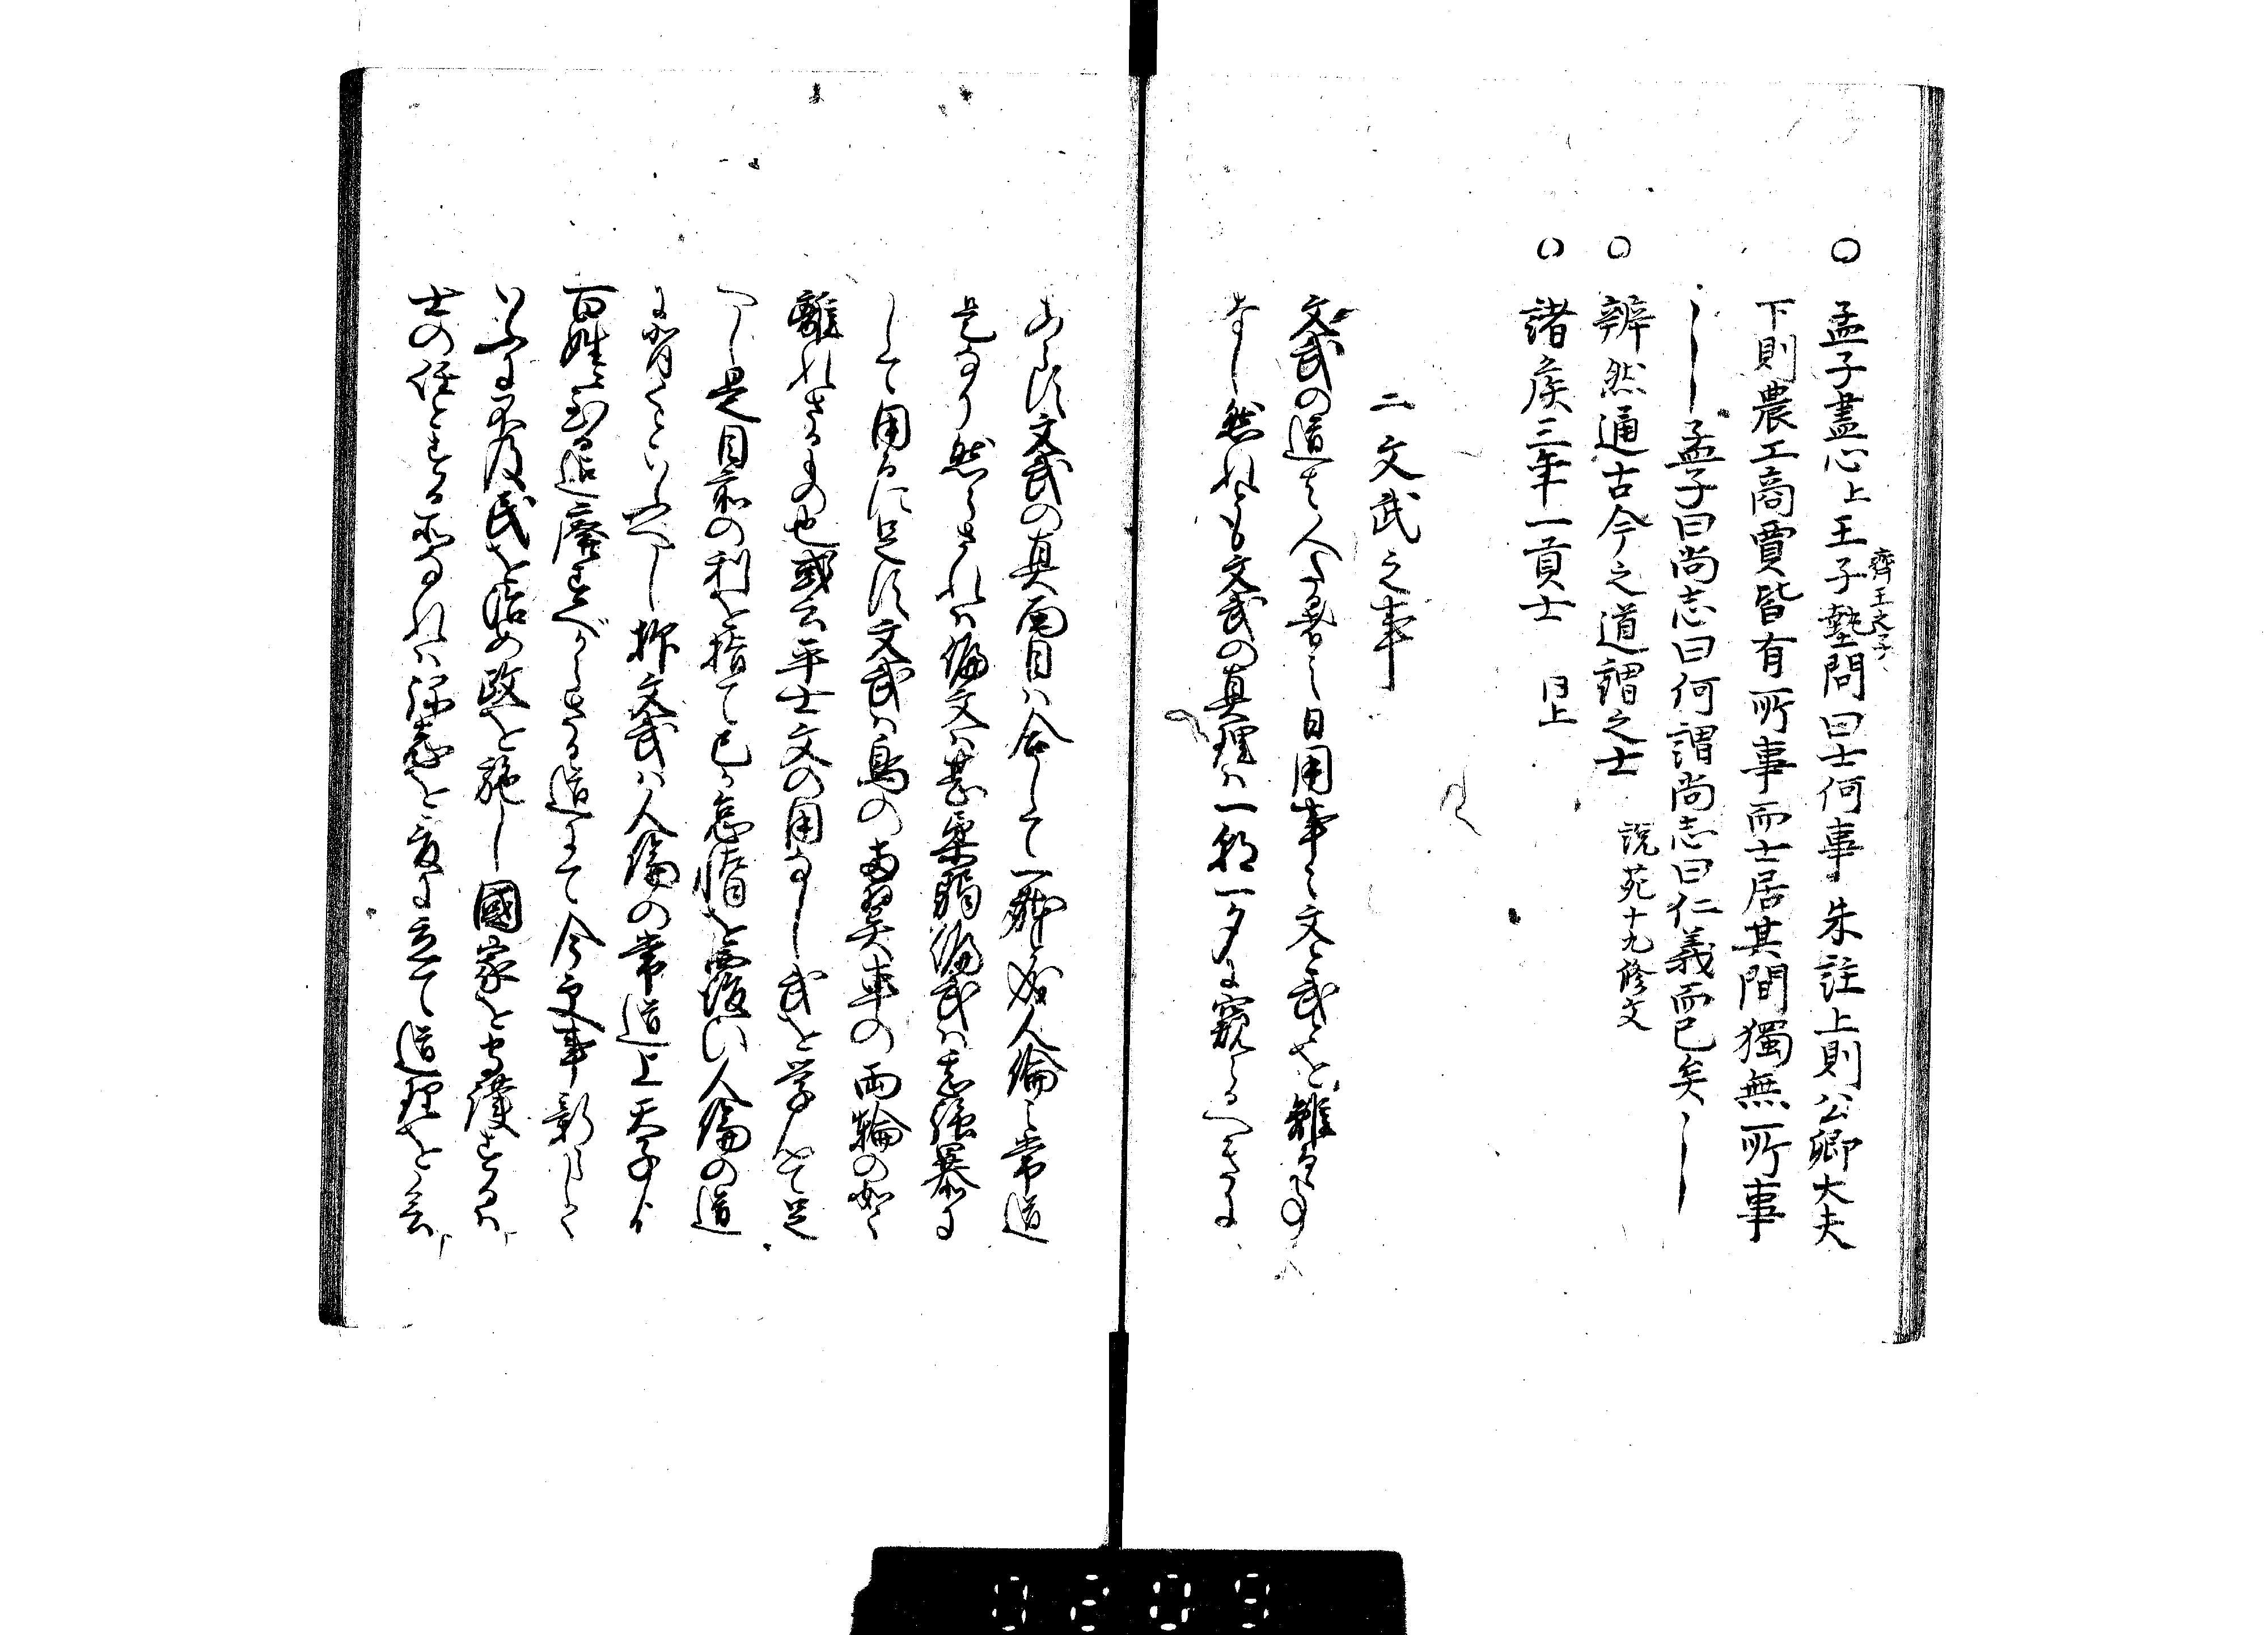 ○ 孟子盡心上王子墊問曰士何事朱註上則公卿大夫
齊王之子
下則農工商賈皆有所事而士居其間獨無所事
〳〵孟子曰尚志曰何謂尚志曰仁義而已矣〳〵
○ 辨然通古今之道謂之士 説苑十九修文
○ 諸侯三年一貢士 同上
二文武之事
文武の道は人々暑之日用事々文と武とを離るゝ事
なし然れとも文武の真理ハ一朝一夕に窺ふへきに
あらす文武の真面目ハ合して一躰と成人倫之常道
是なり然らされハ偏文ハ甚柔弱偏武ハ甚強暴に
して用るに足らす文武ハ鳥の両翼車の両輪の如く
離れさるもの也或云平士文の用なし武を学んて足
へし是目前の利を捨て己か怠惰を覆ひ人倫の道
に背くといふへし抑文武ハ人倫の常道上天子より
百姓に至る迄廃すへからさる道にて今更事新しく
いふに不及民を治め政を施し國家を守護するハ
士の任とする所なれハ深志を爰に立て道理を